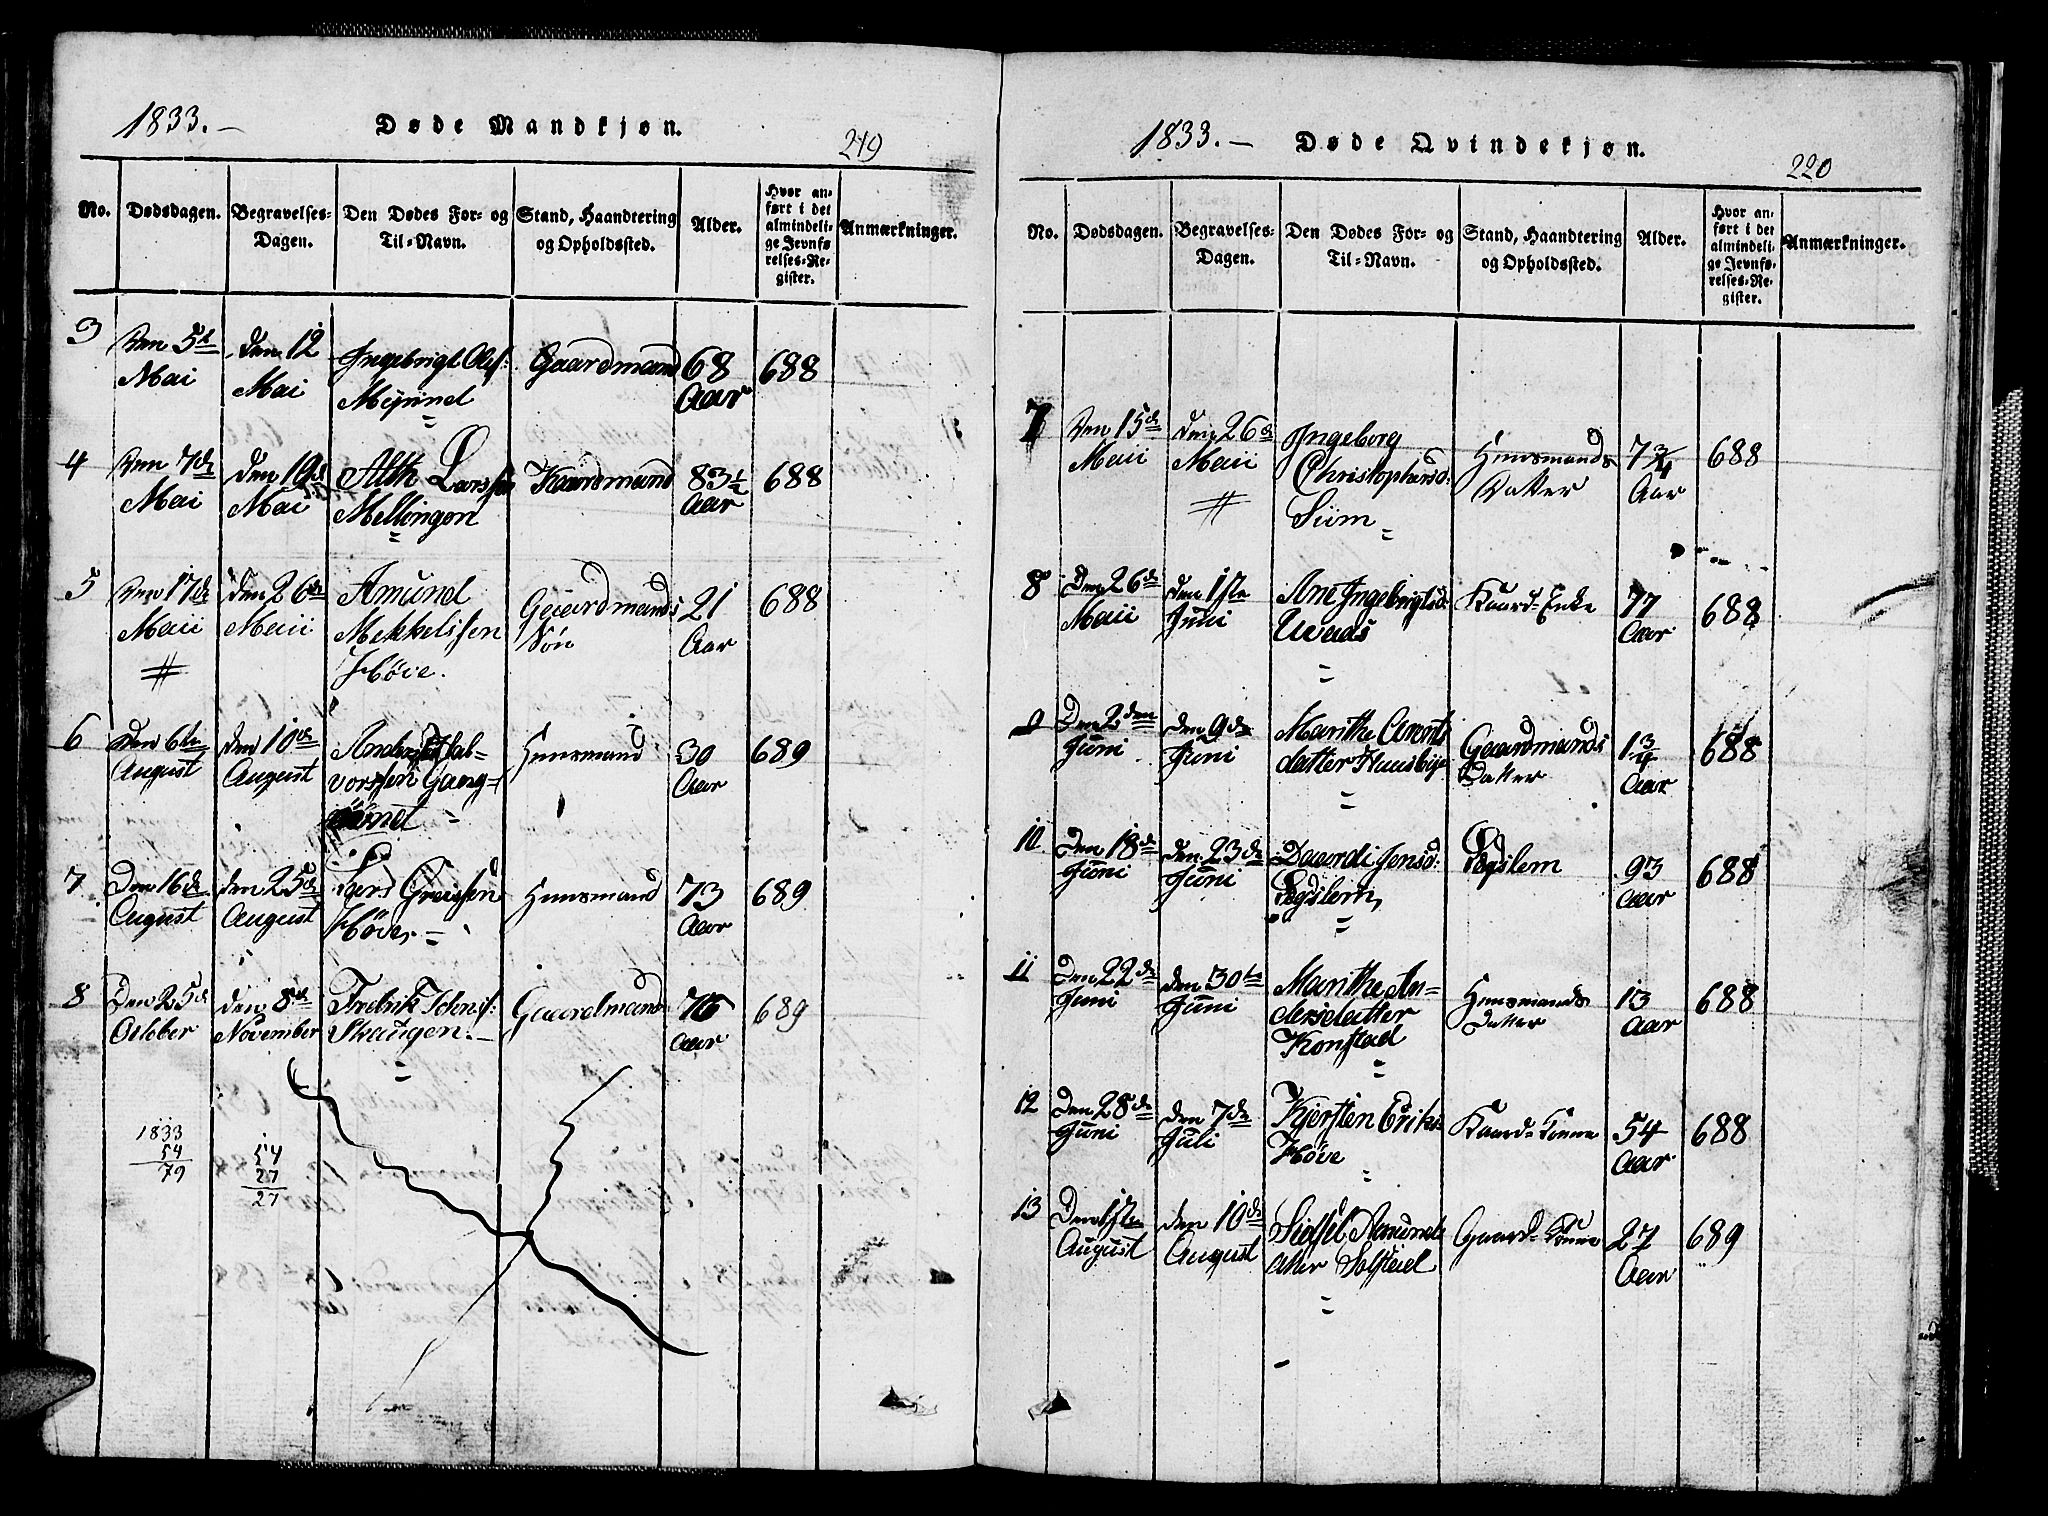 1833.–
Døde Mandkjøn.
219
No.
Dødsdagen.
Begravelses-
Dagen.
Den Dødes For- og
Til-Navn.
Stand, Haandtering
og Opholdssted.
Alder.
Hvor an-
ført i det
almindeli-
ge Jevnfø
relses-Re-
gister.
Anmærkninger.
3
Den 5te
Mai
den 12
Mai
Ingebrigt Ols:
Mjønnel
Gaardmand
68
Aar
688
4
Den 7de
Mai
den 19de
Mai
Larssen
Mellingen
Kaardmand
83½
Aar
688
5
Den 17de
Maii
den 26de
Maii
Amund
Mekkelssen
Høve.
Gaardmands
Søn
21
Aar
688
6
Den 6te
August
den 10de
August
Anders Hal-
vorssen Gang-
Huusmand
30
Aar
689
7
Den 16de
August
den 25de
August
Høve
Huusmand
73
Aar
689
8
Den 25de
October
den 8de
November
Fredrik Johns:
Skaugen.–
Gaardmand
76
Aar
689
1833
54
79
54
27
27
1833.–
Døde Qvindekjøn.
220
No.
Dødsdagen.
Begravelses-
Dagen.
Den Dødes For- og
Til-Navn.
Stand, Haandtering
og Opholdssted.
Alder.
Hvor an-
ført i det
almindeli-
ge Jevnfø-
relses-Re-
gister.
Anmærkninger.
7
Den 15de
Maii
den 26de
Maii
Ingeborg
Christophersd:
Siim
Huusmands
Datter
7¾
Aar
688
8
Den 26de
Maii
den 1ste
Juni
Ane Ingebrigtsd:
Kaard-Enke
77
Aar
688
9
Den 2den
Juni
den 9de
Juni
Marithe Arents
datter Huusbye
Gaardmands
Datter
1¾
Aar
688
10
Den 18de
Juni
den 23de
Juni
Daardi Jensd:
Legslem
Legslem
93
Aar
688
11
Den 22de
Juni
den 30te
Juni
Marithe An-
dersdatter
Konstad
Huusmands
Datter
13
Aar
688
12
Den 28de
Juni
den 7de
Juli
Kjersten Eriks
Høve
Kaard-Konne
54
Aar
688
13
Den 1ste
August
den 10de
August
Sidsel Amund
atter Solsteid
Gaard-Konne
27
Aar
689